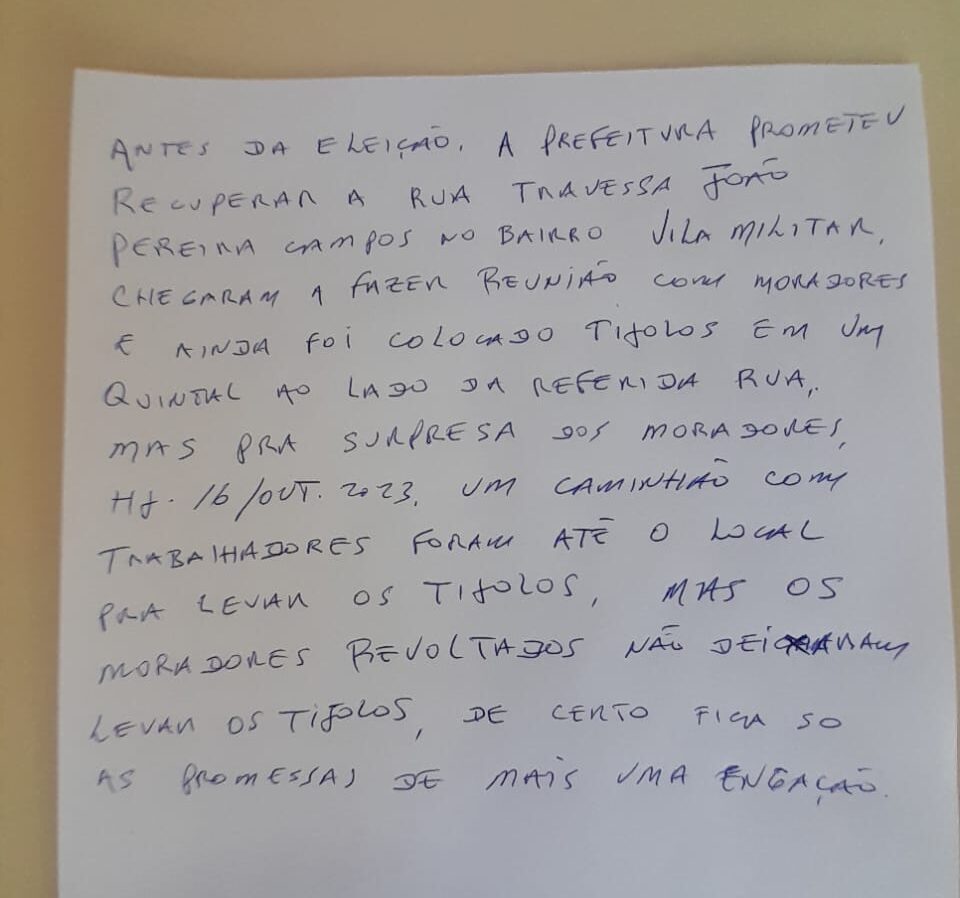 ANTES DA ELEIÇÃO. A PREFEITURA PROMETEU
RECUPERAR A RUA TRAVESSA JOÃO
PEREIRA CAMPOS NO BAIRRO VILA MILITAR,
CHEGARAM A FAZER REUNIÃO COM MORADORES
E AINDA FOI COLOCADO TIJOLOS EM UM
QUINTAL AO LADO DA REFERIDA RUA,
MAS PRA SURPRESA DOS MORADORES,
HJ. 16/OUT. 2023, UM CAMINHÃO COM
TRABALHADORES FORAM ATÉ O LOCAL
PRA LEVAR OS TIJOLOS, MAS OS
MORADORES REVOLTADOS NÃO DEIXARAM
LEVAR OS TIJOLOS, DE CERTO FICA SO
AS PROMESSAS DE MAIS UMA ENGAÇÃO.